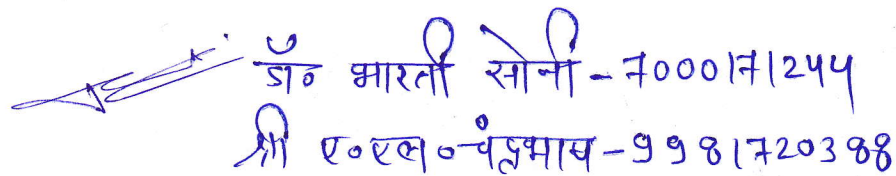 डॉ० भारती सोनी - 7000171244
श्री ए०एल० चंद्रभाष - 9981720388